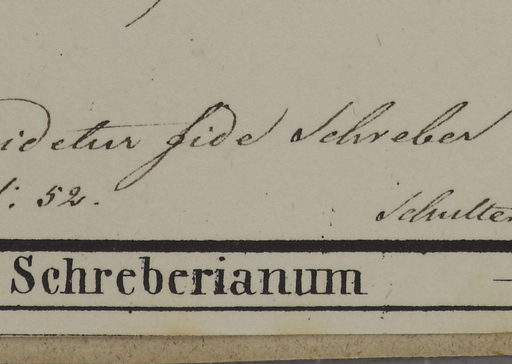 idetur fide Schreber
: 52.
Schulte
Schreberianum —